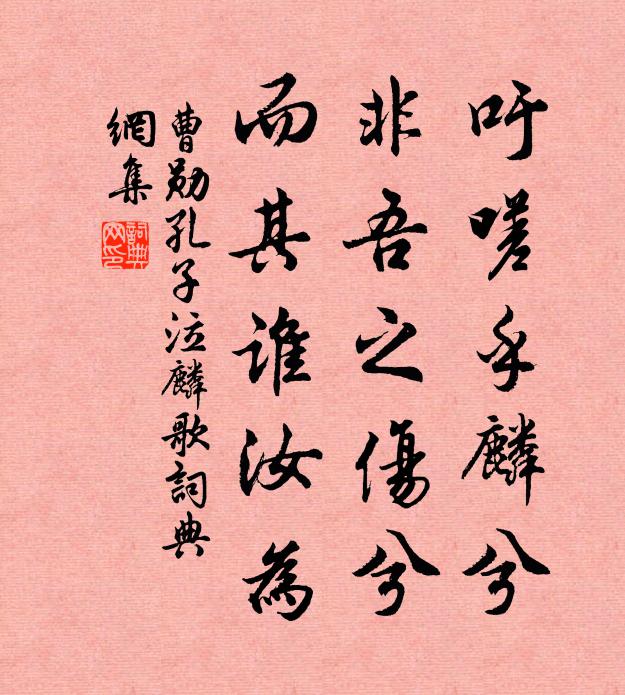 吁嗟乎麟兮
非吾之傷兮
而其誰汝為
曹勛孔子泣麟歌詞典
網集
詞典
网印